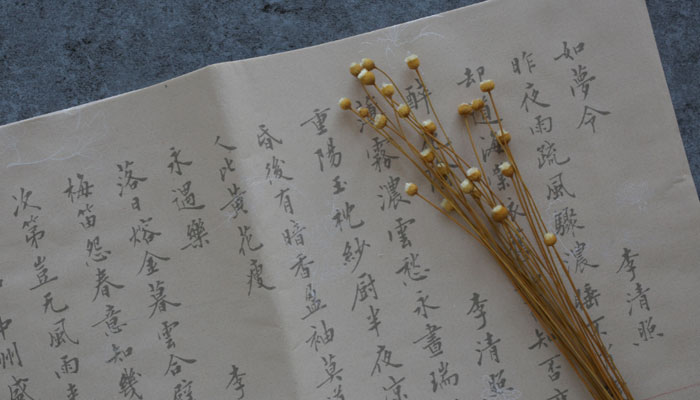 如夢令 李清照
昨夜雨疏風驟濃睡不
却道海棠依 知否
醉 李清照
薄霧濃雲愁永晝瑞
重陽玉枕紗厨半夜凉
昏後有暗香盈袖莫
人比黃花瘦
永遇樂 李
落日熔金暮雲合璧
梅笛怨春意知幾
次第豈无風雨
中州盛